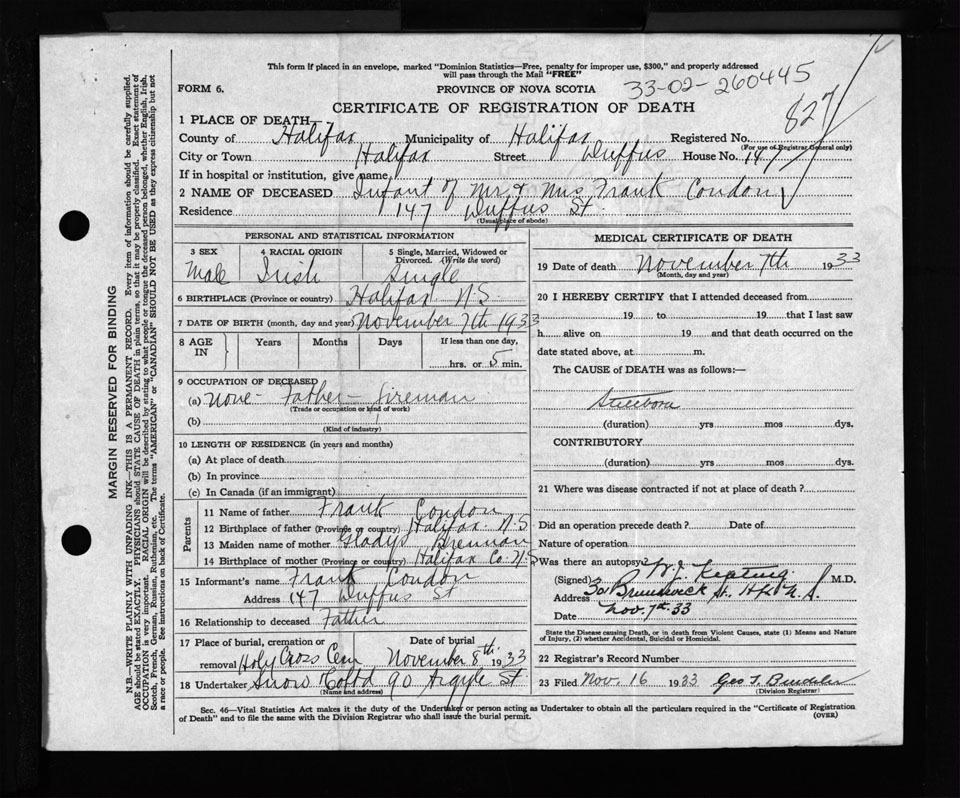 This form if placed in an envelope, marked "Dominion Statistics—Free, penalty for improper use, $300," and properly addressed
will pass through the Mail "FREE"
33-02-260445
FORM 6.
PROVINCE OF NOVA SCOTIA
CERTIFICATE OF REGISTRATION OF DEATH
827
1 PLACE OF DEATH—
County of Halifax Municipality of Halifax Registered No.
(For use of Registrar General only)
City or Town Halifax Street Duffus House No. 147
If in hospital or institution, give name
2 NAME OF DECEASED Infant of Mr. & Mrs Frank Condon
Residence 147 Duffus St.
(Usual place of abode)
PERSONAL AND STATISTICAL INFORMATION
3 SEX 4 RACIAL ORIGIN 5 Single, Married, Widowed or
Divorced. (Write the word)
Male Irish Single
6 BIRTHPLACE (Province or country) Halifax N.S.
7 DATE OF BIRTH (month, day and year) November 7th 1933
8 AGE IN Years Months Days If less than one day,
hrs. or 5 min.
9 OCCUPATION OF DECEASED
(a) None - Father - Fireman
(Trade or occupation or kind of work)
(b)
(Kind of industry)
10 LENGTH OF RESIDENCE (in years and months)
(a) At place of death
(b) In province
(c) In Canada (if an immigrant)
Parents
11 Name of father Frank Condon
12 Birthplace of father (Province or country) Halifax N.S
13 Maiden name of mother Gladys Brennan
14 Birthplace of mother (Province or country) Halifax Co. N.S
15 Informant's name Frank Condon
Address 147 Duffus St
16 Relationship to deceased Father
17 Place of burial, cremation or Date of burial
removal Holy Cross Cem November 8th 1933
18 Undertaker Snow & Co Ltd 90 Argyle St
(Name and address)
MEDICAL CERTIFICATE OF DEATH
19 Date of death November 7th 1933
(Month, day and year)
20 I HEREBY CERTIFY that I attended deceased from
19 to 19 that I last saw
h alive on 19 and that death occurred on the
date stated above, at m.
The CAUSE of DEATH was as follows:—
Stillborn
(duration) yrs mos dys.
CONTRIBUTORY
(duration) yrs mos dys.
21 Where was disease contracted if not at place of death?
Did an operation precede death? Date of
Nature of operation
Was there an autopsy?
(Signed) W.J. Keating M.D.
Address 30 Brunswick St. Hfx N.S.
Date Nov. 7th 33
State the Disease causing Death, or in death from Violent Causes, state (1) Means and Nature
of Injury, (2) whether Accidental, Suicidal or Homicidal.
22 Registrar's Record Number
23 Filed Nov. 16 1933 Geo T.
(Division Registrar)
Sec. 46—Vital Statistics Act makes it the duty of the Undertaker or person acting as Undertaker to obtain all the particulars required in the "Certificate of Registration
of Death" and to file the same with the Division Registrar who shall issue the burial permit.
(OVER)
MARGIN RESERVED FOR BINDING
N.B.—WRITE PLAINLY WITH UNFADING INK—THIS IS A PERMANENT RECORD. Every item of information should be carefully supplied.
AGE should be stated EXACTLY. PHYSICIANS should STATE CAUSE OF DEATH in plain terms, so that it may be properly classified. Exact statement of
OCCUPATION is very important. RACIAL ORIGIN will be described by stating to what people or tongue the deceased person belonged, whether English, Irish,
Scotch, French, German, Russian, Ruthenian, etc. The terms "AMERICAN" or "CANADIAN" SHOULD NOT BE USED as they express citizenship but not
a race or people. See instructions on back of Certificate.